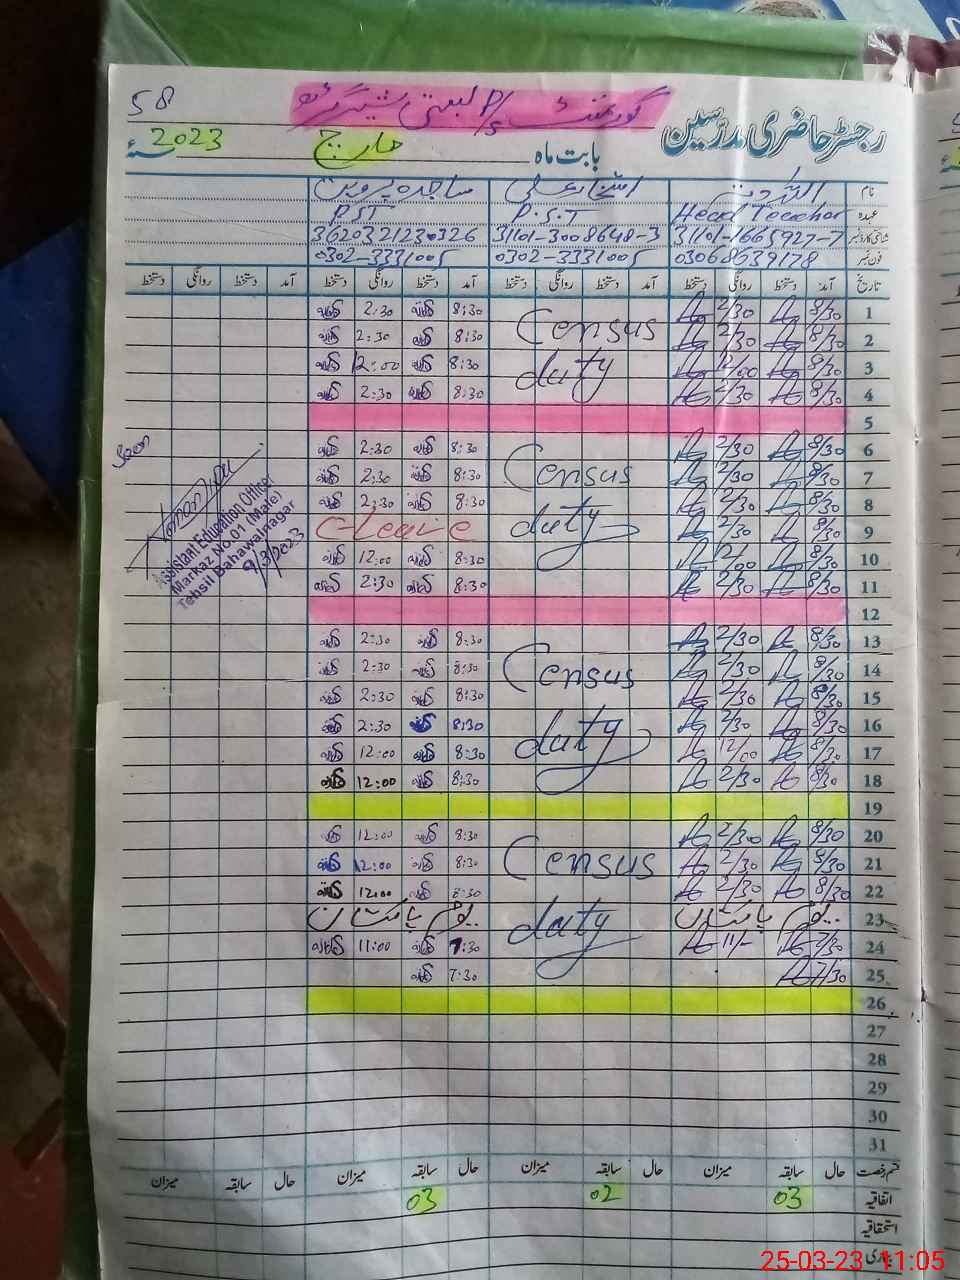 58
گورنمنٹ P/S
رجسٹر حاضری مدرسین
بابت ماہ مارچ
2023 سنۂ
نام ساجدہ پروین
عہدہ Head Teacher P.S.T PST
شناختی کارڈ نمبر 31101-1665927-7 31101-3008648-3 3620321230326
فون نمبر 03068639178 0302-3331005 0302-3331005
تاریخ آمد دستخط روانگی دستخط آمد دستخط روانگی دستخط آمد دستخط روانگی دستخط
1 8/30 2/30 Census 8:30 2:30
2 8/30 2/30 8:30 2:30
3 8/30 12/00 duty 8:30 12:00
4 8/30 2/30 8:30 2:30
5
6 8/30 2/30 Census 8:30 2:30
7 8/30 2/30 8:30 2:30
8 8/30 2/30 duty 8:30 2:30
9 8/30 2/30 C-leave
10 8/30 12/00 8:30 12:00
11 8/30 2/30 8:30 2:30
12
13 8/30 2/30 8:30 2:30
14 8/30 2/30 Census 8:30 2:30
15 8/30 2/30 8:30 2:30
16 8/30 2/30 duty 8:30 2:30
17 8/30 12/00 8:30 12:00
18 8/30 2/30 8:30 12:00
19
20 8/30 2/30 8:30 12:00
21 8/30 2/30 Census 8:30 12:00
22 8/30 2/30 8:30 12:00
23 یوم پاکستان duty یوم پاکستان
24 7/30 11/- 7:30 11:00
25 7/30 7:30
26
27
28
29
30
31
Assistant Education Officer
Markaz No-01 (Male)
Tehsil Bahawalnagar
9/3/2023
قسم رخصت حال سابقہ میزان حال سابقہ میزان حال سابقہ میزان حال سابقہ میزان
اتفاقیہ 03 02 03
استحقاقیہ
بیماری
25-03-23 11:05